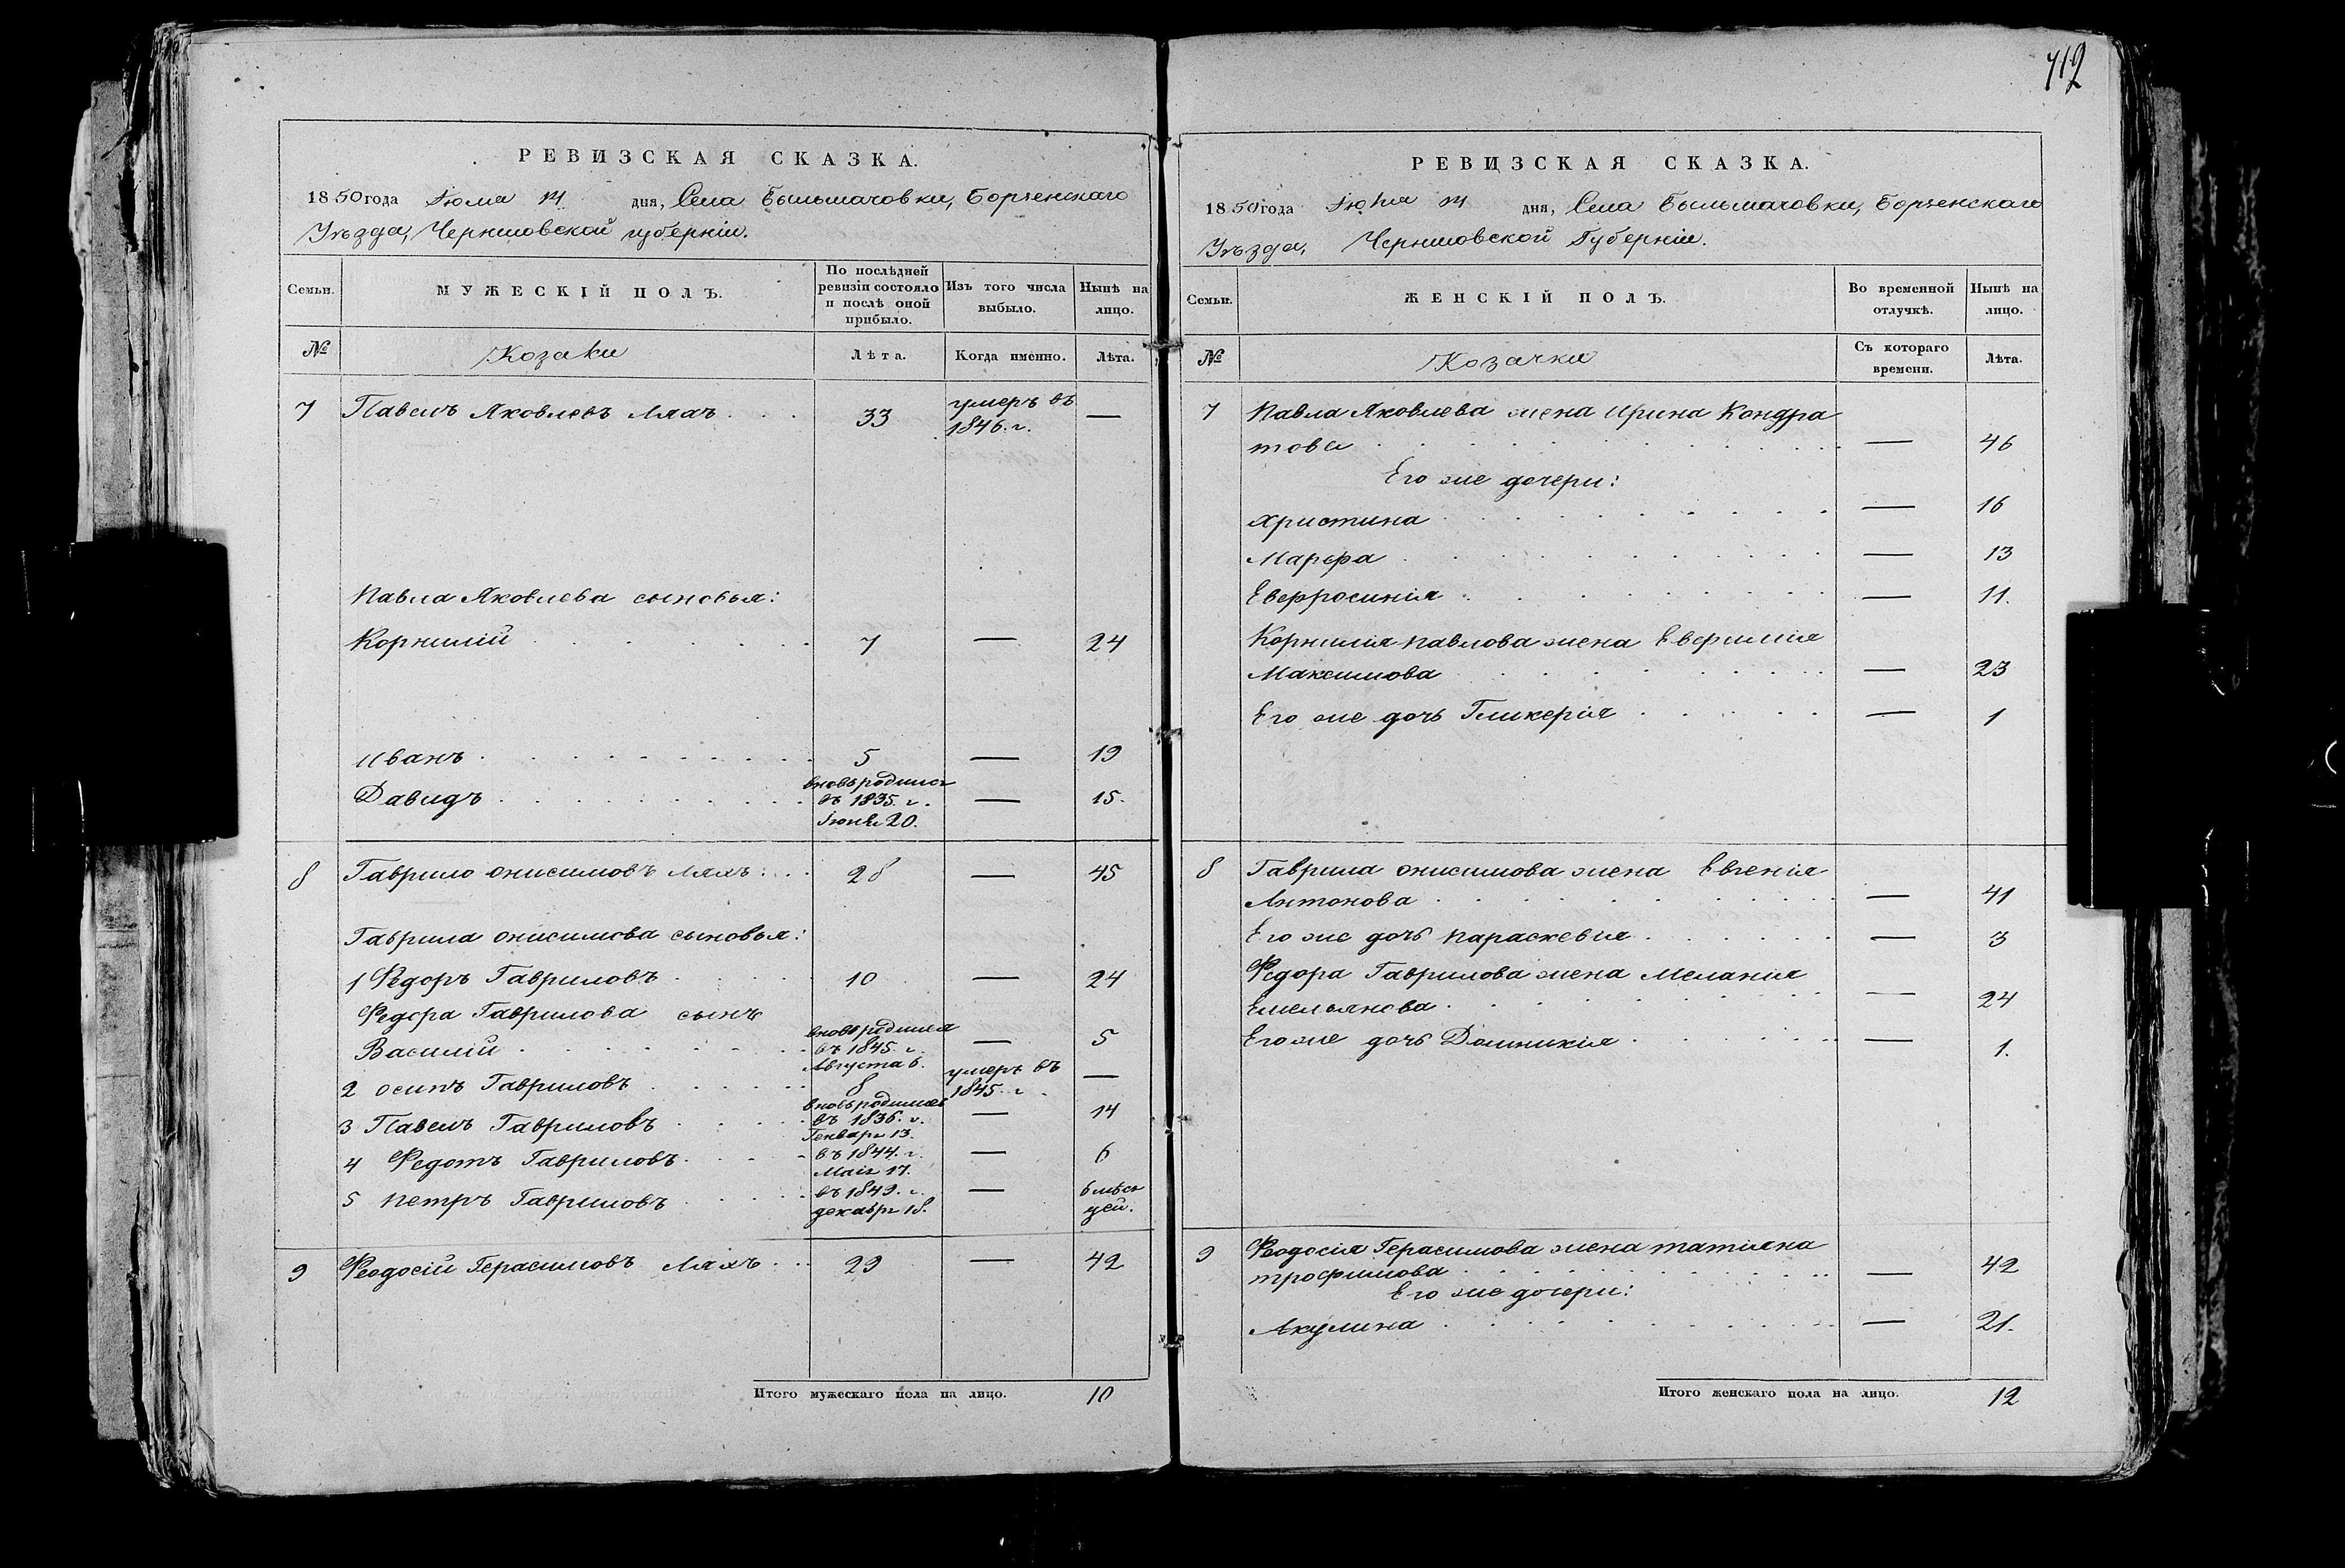 712
РЕВИЗСКАЯ СКАЗКА.
1850 года Іюля 14 дня, Села Бысьмачовки, Борзенскаго
Уѣзда, Черниговской губерніи.
Семьи. МУЖЕСКІЙ ПОЛЪ. По послѣдней ревизіи состояло и послѣ оной прибыло. Изъ того числа выбыло. Нынѣ на лицо.
№ Козаки Лѣта. Когда именно. Лѣта.
7 Павелъ Яковлевъ Ляхъ 33 умеръ въ 1846. г. —
Павла Яковлева сыновья:
Корнилій 7 — 24
Иванъ 5 — 19
Давидъ вновь родился въ 1835. г. Іюня 20. — 15.
8 Гаврило Онисимовъ Ляхъ 28 — 45
Гаврила Онисимова сыновья:
1 Федоръ Гавриловъ 10 — 24
Федора Гаврилова сынъ
Василій вновь родился въ 1845. г. Августа 6. — 5
2 Осипъ Гавриловъ 8 умеръ въ 1845. г. —
3 Павелъ Гавриловъ вновь родился въ 1836. г. Генваря 13. — 14
4 Федотъ Гавриловъ въ 1844. г. Маія 17. — 6
5 Петръ Гавриловъ въ 1849. г. декабря 18. — 6 мѣся
цей.
9 Феодосій Герасимовъ Ляхъ 29 — 42
Итого мужескаго пола на лицо. 10
РЕВИЗСКАЯ СКАЗКА.
1850 года Іюля 14 дня, Села Бысьмачовки, Борзенскаго
Уѣзда, Черниговской Губерніи.
Семьи. ЖЕНСКІЙ ПОЛЪ. Во временной отлучкѣ. Нынѣ на лицо.
№ Козачки Съ котораго времени. Лѣта.
7 Павла Яковлева жена Ирина Кондра
това — 46
Его же дочери:
Христина — 16
Марфа — 13
Евфросинія — 11.
Корнилія Павлова жена Евфимія
Максимова — 23
Его же дочь Гликерія — 1
8 Гаврила Онисимова жена Евгенія
Антонова — 41
Его же дочь Параскевія — 3
Федора Гаврилова жена Меланія
Емельянова — 24
Его же дочь Домникія — 1.
9 Феодосія Герасимова жена Татіяна
Трофимова — 42
Его же дочери:
Акулина — 21.
Итого женскаго пола на лицо. 12